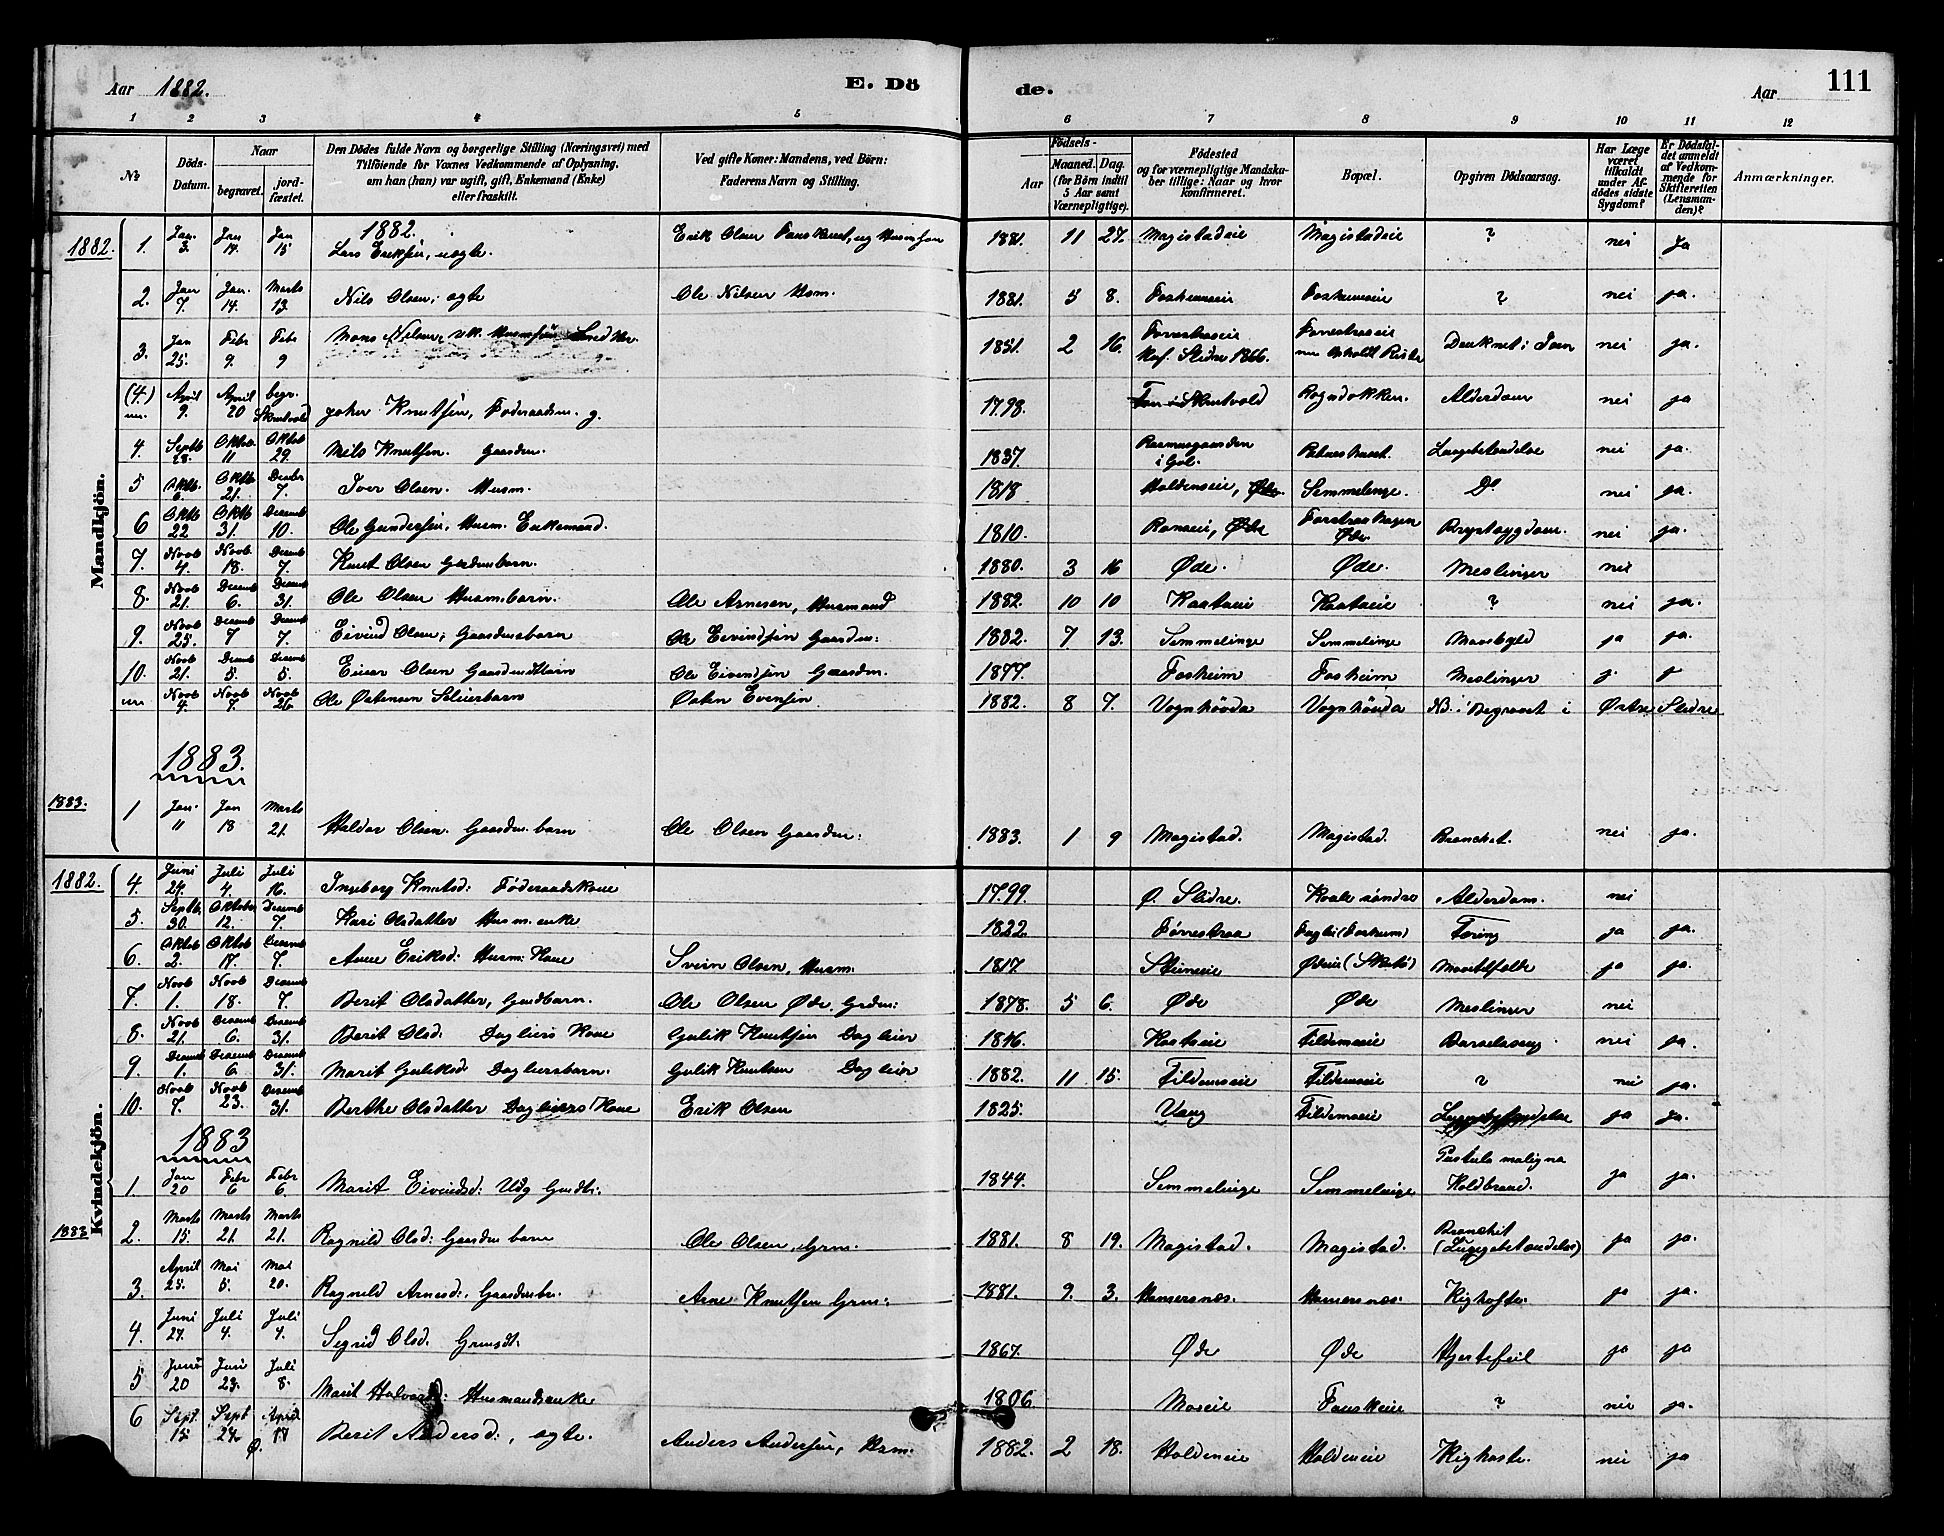 Aar 1882.
E. Dö
de.
Aar
111
1 2 3 4 5 6 7 8 9 10 11 12
№
Döds-Datum.
Naar
begravet.
jord-fæstet.
Den Dödes fulde Navn og borgerlige Stilling (Næringsvei) med
Tilföiende for Voxnes Vedkommende af Oplysning,
om han (hun) var ugift, gift, Enkemand (Enke)
eller fraskilt.
Ved gifte Koner: Mandens, ved Börn:
Faderens Navn og Stilling.
Födsels-
Aar
Maaned. Dag.
(for Börn indtil
5 Aar samt
Værnepligtige).
Födested
og for værnepligtige Mandska-
ber tillige: Naar og hvor
konfirmeret.
Bopæl.
Opgiven Dödsaarsag.
Har Læge
været
tilkaldt
under Af-
dödes sidste
Sygdom?
Er Dödsfal-
det anmeldt
af Vedkom-
mende for
Skifteretten
(Lensman-
den)?
Anmærkninger.
Mandkjön.
1882.
1882. 1. Jan. 3. Jan 14. Jan 15 Lars Eriksen, uægte. Erik Olsen 1881. 11 27. Magistadeie Magistadeie ? nei Ja
2. Jan 7. Jan. 14. Marts 13. Nils Olsen, ægte Ole Nilsen Husm. 1881. 5 8. Fosheimeie Fosheimeie ? nei ja.
3. Jan 25. Febr 9. Febr 9 Mons Nilsen, 1851. 2 16. Konf. Slidre 1866. nei ja.
(4.) April 9. April 20 begr. Skrutvold Knutsen, Föderaadsm. g. 1798. Skrutvold Rogndokken. Alderdom nei ja
4. Septb 28. Oktob. 11 Oktob 29. Nils Knutsen. Gaardm. 1837. i Gol. Lungebetændelse nei ja.
5 Oktb. 6. Oktb 21. Decbr 7. Iver Olsen. Husm. 1818 Semmelenge. Do nei ja.
6 Oktb 22 Oktb 31. Decemb 10. Ole Gundersen, Husm. Enkemand. 1810. Brystsygdom. nei ja.
7. Novb 4. Novb. 18. Decemb 7. Knut Olsen Gardmbarn. 1880. 3 16 Øde. Øde. Meslinger nei
8. Novb 21. Decemb 6. Decemb 31. Ole Olsen Husm.barn. Ole Arnesen, Husmand 1882. 10 10 Kaataeie Kaataeie ? nei ja.
9. Novb 25. Decemb 7 Decemb 7. Eivind Olsen, Gaardmbarn Ole Eivindsen Gaardm: 1882. 7 13. Semmelinge Semmelinge Mavebyld ja ja.
10. Novb 21. Decemb 5. Decemb 5. Einar Olsen Ole Eivindsen Gaardm. 1877. Fosheim Fosheim Meslinger j. j
Novb 4. Novb 7. Novb 26. Ole Østensen Østen Evensen 1882. 8 7. Vognhövda Vognhövda NB. i Begravet i Østre Slidre
1883.
1883. 1 Jan. 11 Jan 18 Marts 21. Haldor Olsen. Gaardm. barn Ole Olsen Gaardm: 1883. 1 9 Magistad. Magistad. Bronchit. nei ja.
Kvindekjön.
1882. 4. Juni 24. Juli 4. Juli 16. Ingeborg Knutsd: Föderaadskone 1799. Ø. Slidre. Alderdom. nei
5. Septb. 30. Oktober 12. Decemb 7. Kari Olsdatter Husm. enke 1822 Tæring ja ja.
6. Oktob 2. Oktob 17. Decemb 7. Anne Eriksd: Husm: Kone Svein Olsen, Husm: 1817. ja ja.
7. Novb 1. Novb 18. Decemb 7. Berit Olsdatter, Grdmbarn. Ole Olsen Øde, Grdm: 1878. 5 6. Øde Øde Meslinger nei
8. Novb 21. Decemb 6. Decemb 31. Berit Olsd. Dagleiers Kone Gulik Knutsen Dagleier 1846. Kaataeie Fildemoeie Barselseng nei ja.
9. Decemb 1. Decemb 6. Decemb 31. Marit Guliksd: Dagleiersbarn. Gulik Knutsen Dagleier 1882. 11 15. Fildemoeie Fildemoeie ? nei ja.
10. Novb 7. Novb 23. Decemb 31. Berthe Olsdatter Dagleiers Kone Erik Olsen 1825. Vang Fildemoeie Lungebetændelse ja ja.
1883
1 Jan 20 Febr 6 Febr 6. Marit Eivindsd: 1844. Semmelinge Semmelinge Pustula maligna Koldbrand. ja ja.
1883 2. Marts 15. Marts 21. Marts 21. Ragnild Olsd: Gaardm barn Ole Olsen, Grm: 1881. 8 19. Magistad. Magistad. Bronchit (Lungebetændelse) ja ja.
3. April 25. Mai 5. Mai 20. Ragnild Arnesd: Arne Knutsen Grm: 1881. 9. 3. Hamersnæs. Hamersnæs. Kighoste. ja ja.
4. Juni 27. Juli 4. Juli 4. Sigrid Olsd. 1867. Øde Øde Hjertefeil ja ja
5 Juni 20 Juni 23. Juli 8. Marit Husmandsenke 1806 Moeie Fauskeie ? nei ja.
6 Sept. 15 Sept 24. April 17 Ø. Berit Andersd:, ægte. Anders Andersen, Husm: 1882. 2 18. Holdeneie Holdeneie Kighoste. nei ja